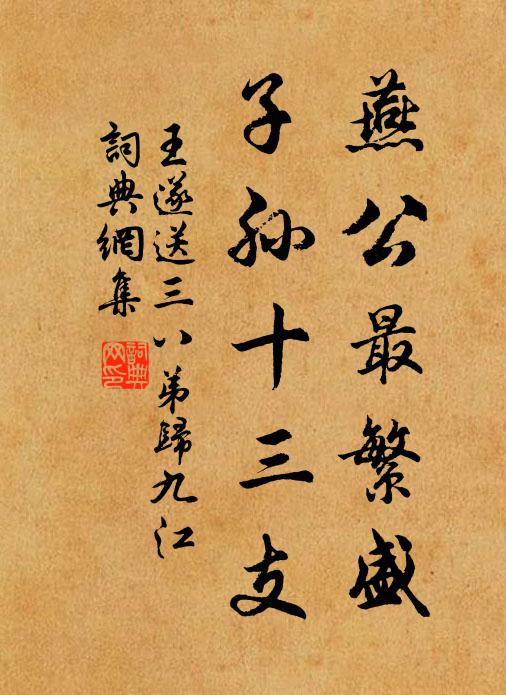 燕公最繁盛
子孙十三支
王遂送三八弟歸九江
詞典網集
詞典网印